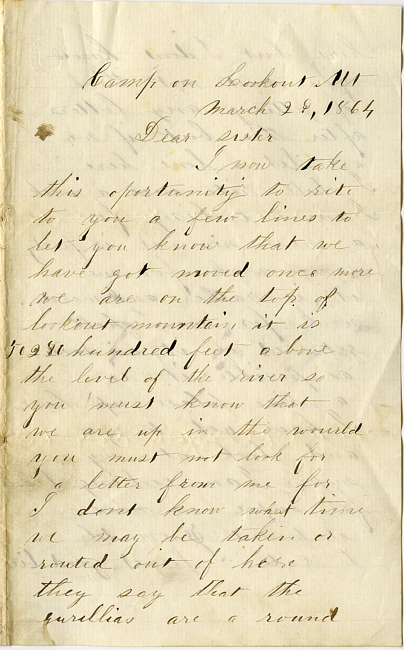 Camp on Lookout Mt
March 2d, 1864
Dear sister
I now take
this oportunity to rite
to you a few lines to
let you know that we
have got moved once more
we are on the top of
lookout mountain it is
hundred feet above
the level of the river so
you must know that
we are up in the wourld
you must not look for
a letter from me for
I dont know what time
we may be taken or
routed out of here
they say that the
gurillias are a round